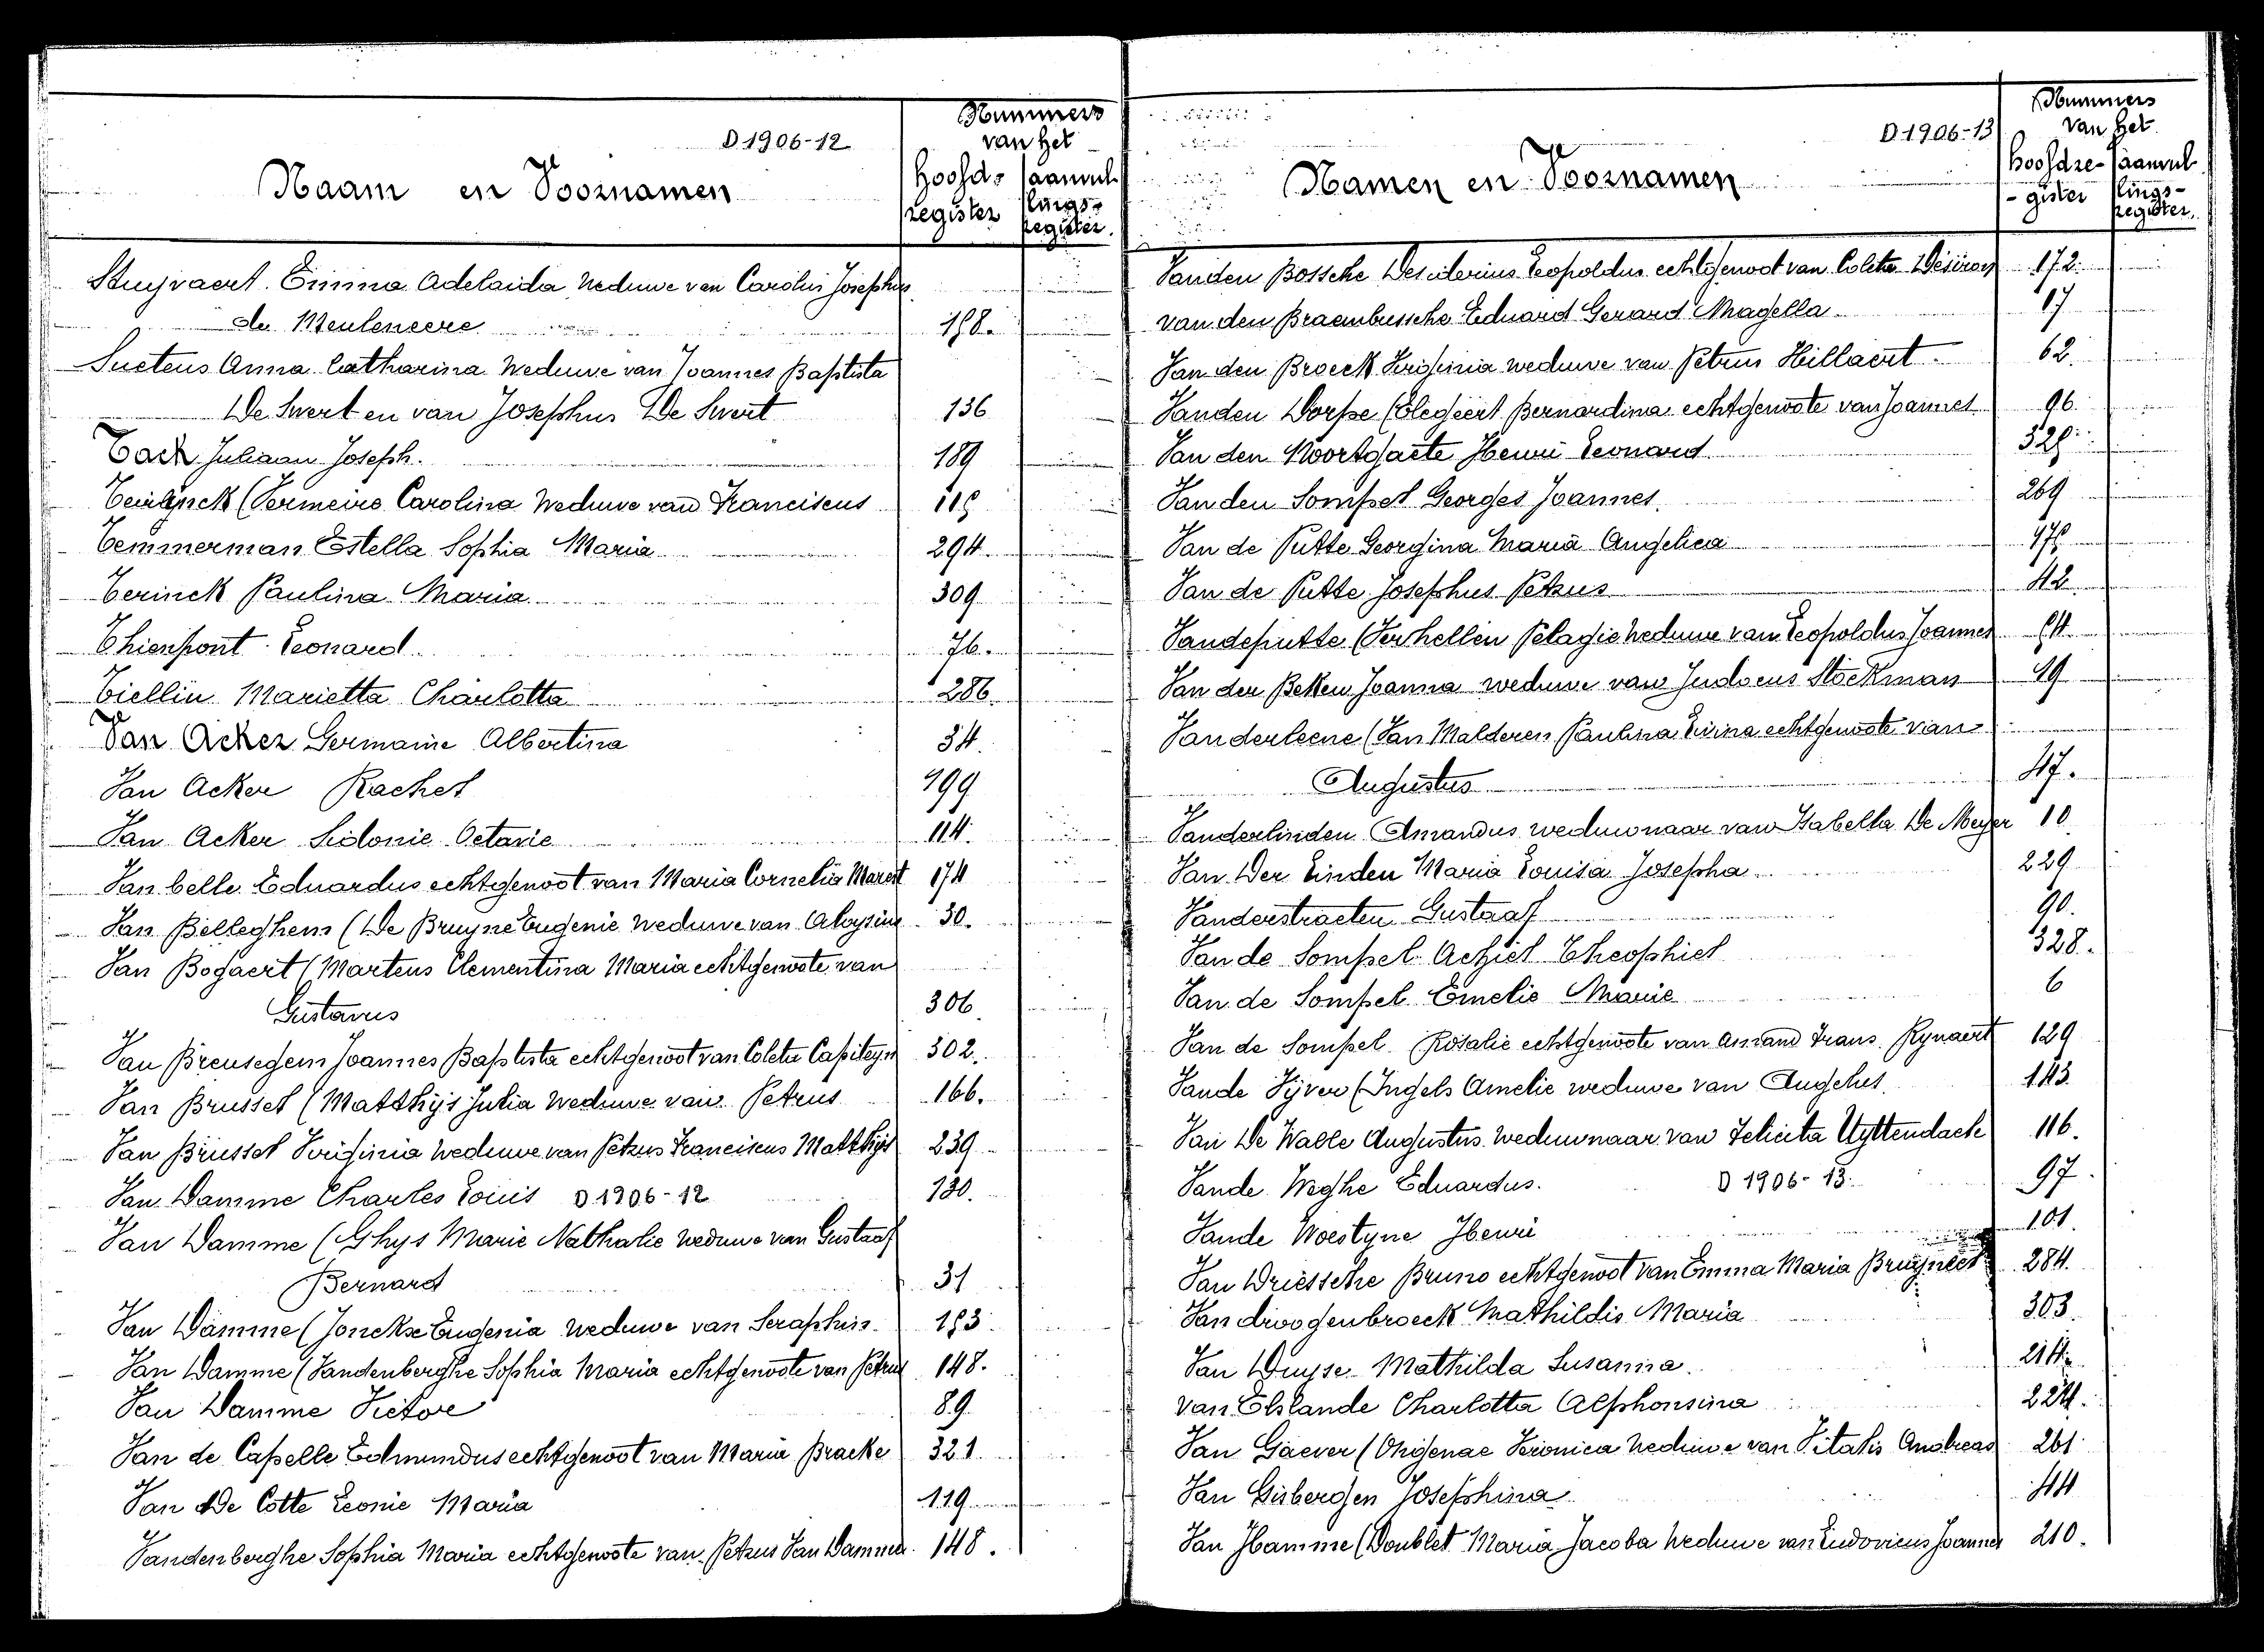 D 1906-12
Naam en Voornamen
Nummers
van het
hoofd-
register
aanvul
lings-
register.
Stuyvaert Emma Adelaida weduwe van Carolus Josephus
de Meuleneere 198.
Suetens Anna Catharina weduwe van Joannes Baptista
De Swert en van Josephus De Swert 136
Tack Juliaan Joseph. 189
(Vermeire Carolina weduwe van Franciscus
Temmerman Estella Sophia Maria 294.
Terinck Paulina Maria 309
Thienpont Leonard 76.
Tiellin Marietta Charlotta 286.
Van Acker Germaine Albertina 34.
Van Acker Rachel 199
Van Acker Sidonie Octavie 114.
Van belle Eduardus echtgenoot van Maria Cornelia 174
Van Belleghem (De Bruyne Eugenie weduwe van Aloysius 30.
Van Bogaert (Martens Clementina Maria echtgenoote van
Gustavus 306.
Van Breusegem Joannes Baptista echtgenoot van Coleta Capiteyn 302.
Van Brussel (Matthijs Julia weduwe van Petrus 166.
Van Brussel Virginia weduwe van Petrus Franciscus Matthijs 239
Van Damme Charles Louis D 1906-12 130.
Van Damme (Ghys Marie Nathalie weduwe van Gustaaf
Bernard 31
Van Damme (Jonckse Eugenia weduwe van Seraphin 193
Van Damme (Vandenberghe Sophia Maria echtgenoote van Petrus 148.
Van Damme Victor 89
Van de Capelle Edmundus echtgenoot van Maria Bracke 321.
Van de Cotte Leonie Maria 119
Vandenberghe Sophia Maria echtgenoote van Petrus Van Damme. 148.
D 1906-13
Namen en Voornamen
Nummers
van het
hoofdre-
-gister
aanvul
lings-
register.
Vanden Bossche Desiderius Leopoldus echtgenoot van Coleta 172.
van den Braembussche Eduard Gerard Magella 17
Van den Broeck Virginia weduwe van Petrus Hillaert 62.
Vanden Dorpe (Elegeert Bernardina echtgenoote van Joannes 96.
Van den Noortgaete Henri Leonard
Van den Sompel Georges Joannes 269
Van de Putte Georgina Maria Angelica
Van de Putte Josephus Petrus 42
Vandeputte (Verhellen Pelagie weduwe van Leopoldus Joannes
Van der Beken Joanna weduwe van Judocus Stockman 49
Vanderleene (Van Malderen Paulina Livina echtgenoote van
Augustus 47.
Vanderlinden Amandus weduwnaar van Isabella De Meyer 10.
Van Der Linden Maria Louisa Josepha 229
Vanderstraeten Gustaaf 90.
Van de Sompel Achiel Theophiel 328.
Van de Sompel Emelie Marie 6
Van de Sompel Rosalie echtgenoote van Amand Frans Rynaert 129
Vande Vyver (Ingels Amelie weduwe van Angelus 143
Van De Walle Augustus weduwnaar van Felicita Uyttendaele 116.
Vande Weghe Eduardus. D 1906-13. 97.
Vande Woestyne Henri 101.
Van Driessche Bruno echtgenoot van Emma Maria Bruyneel 284.
Van droogenbroeck Mathildis Maria 303.
Van Duyse Mathilda Susanna 214.
van Elslande Charlotta Alphonsina 224.
Van Gaever (Ongenae Veronica weduwe van Vitalis Andreas 261
Van Gisbergen Josephina 44
Van Hamme (Doublet Maria Jacoba weduwe van Ludovicus Joannes 210.